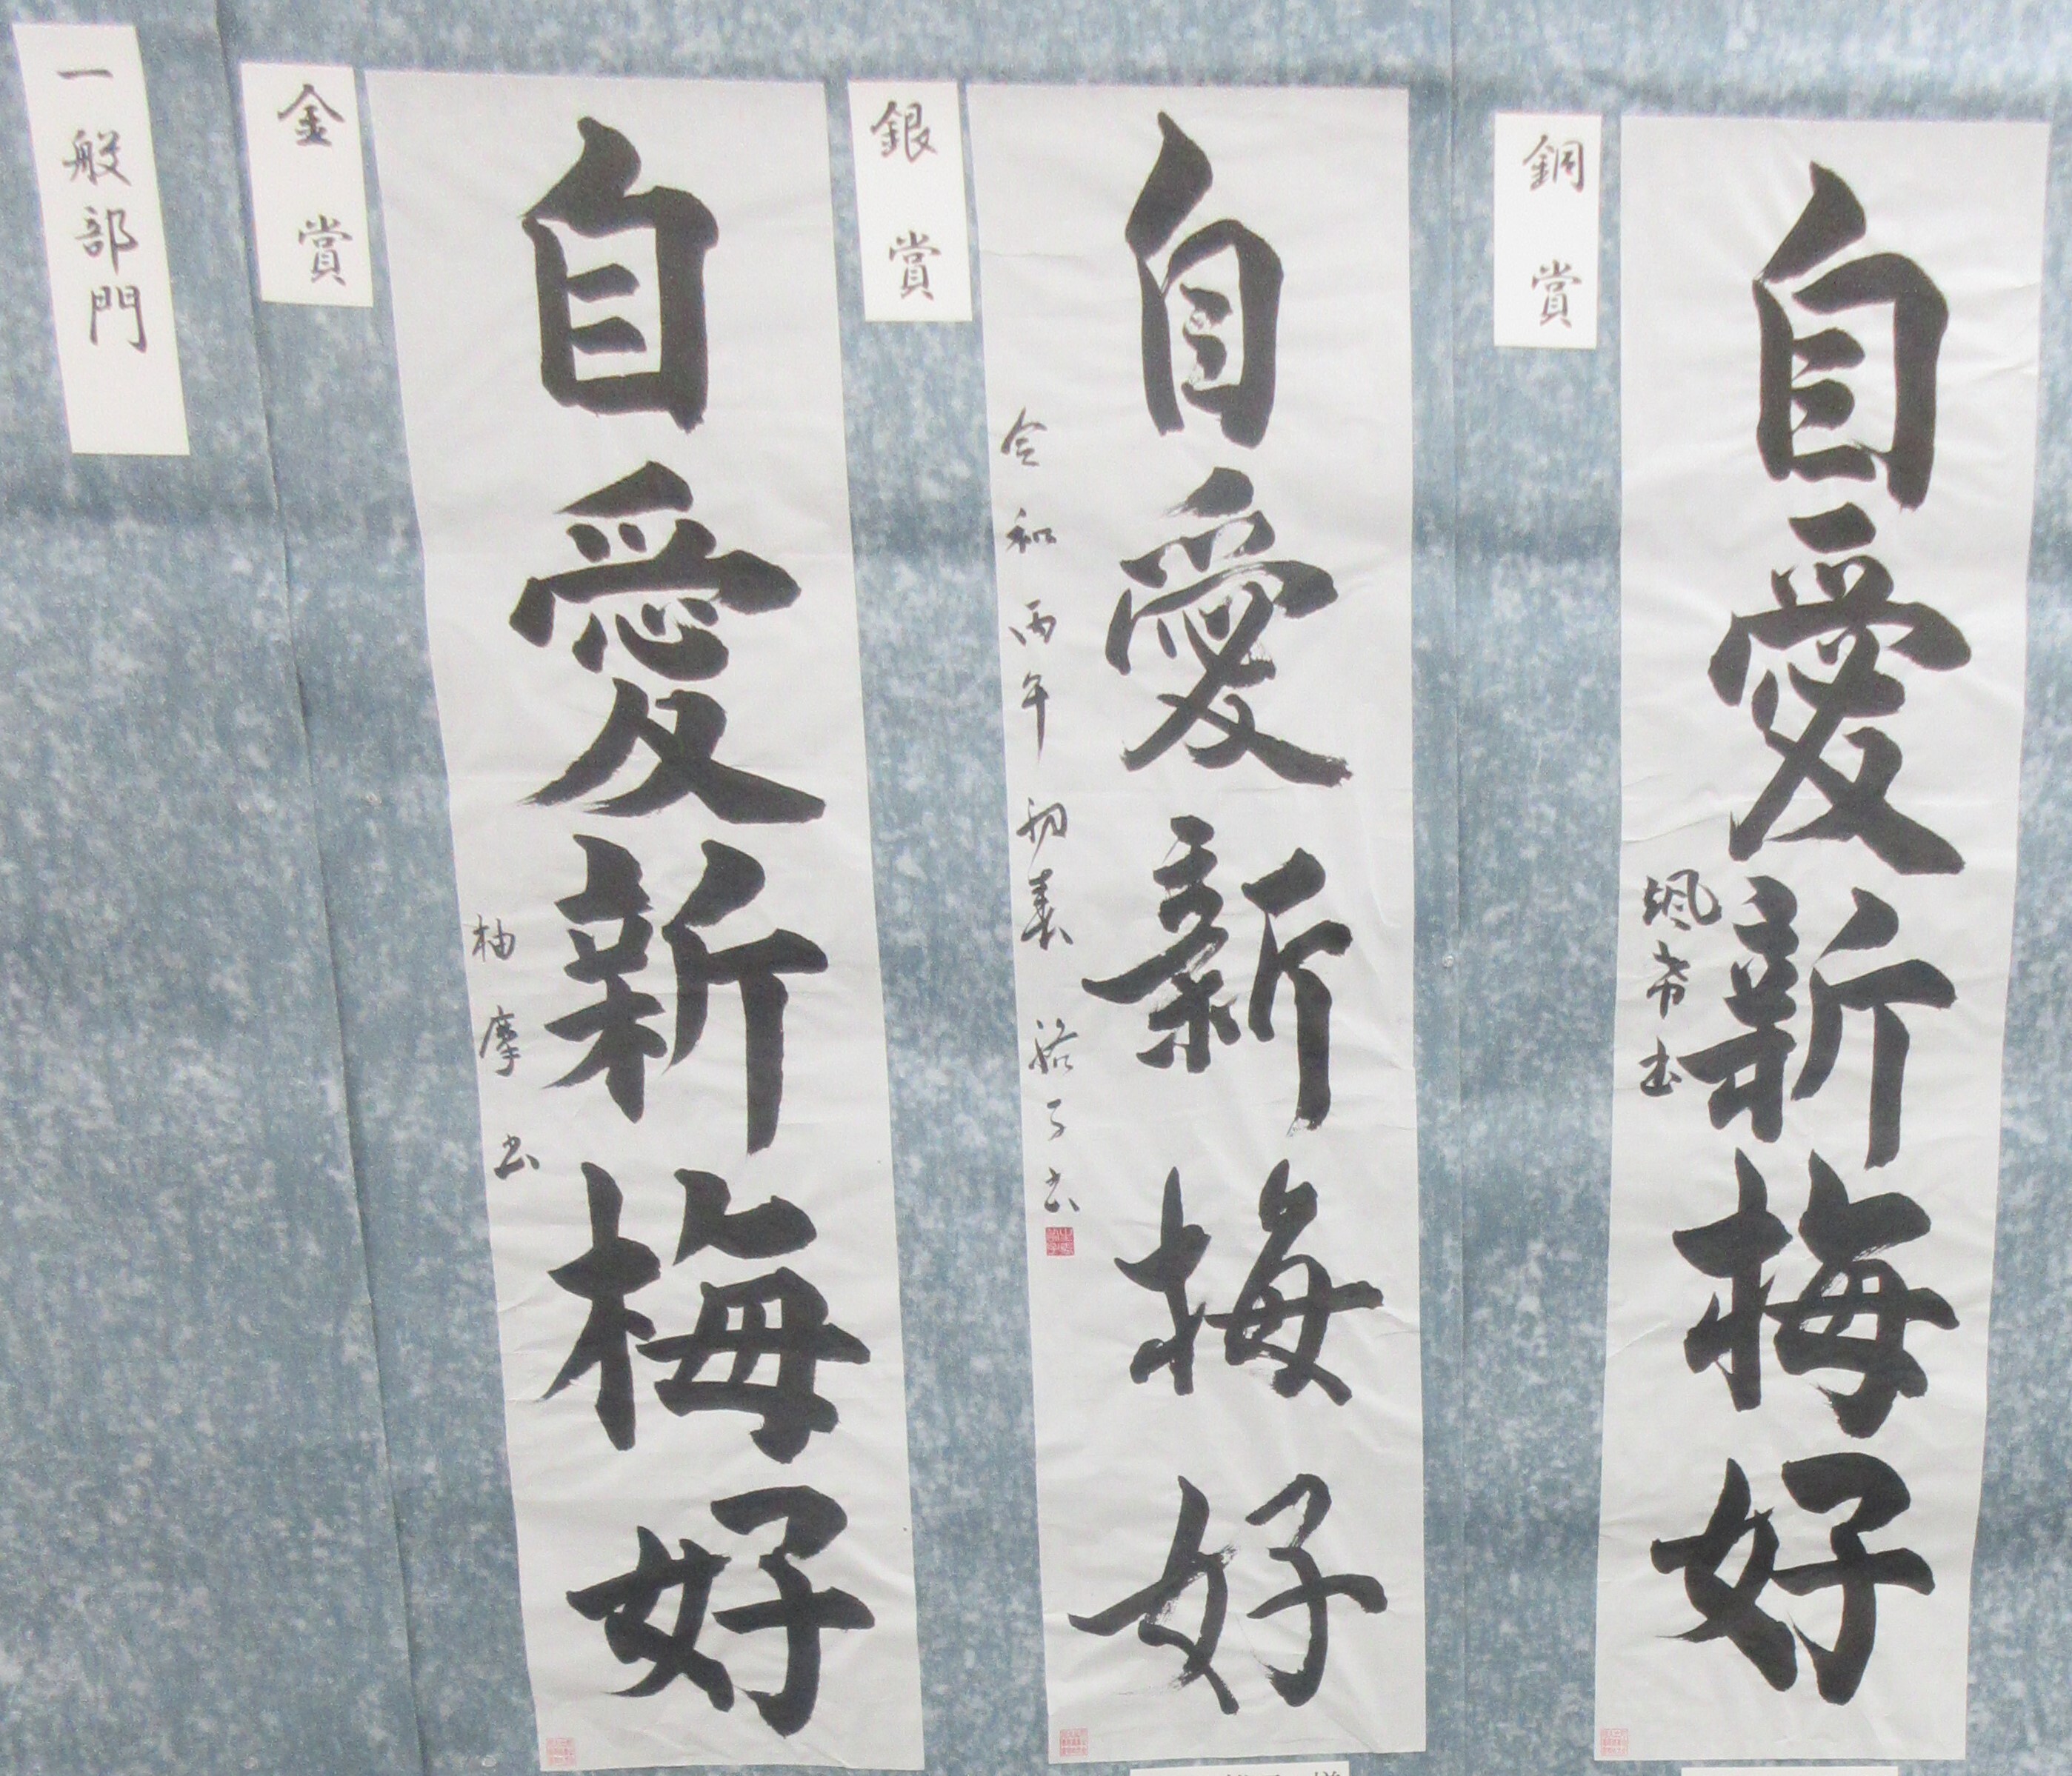 一般部門
金賞
自愛新梅好
柚摩書
銀賞
自愛新梅好
令和丙午初春 裕子書
銅賞
自愛新梅好
颯希書
様